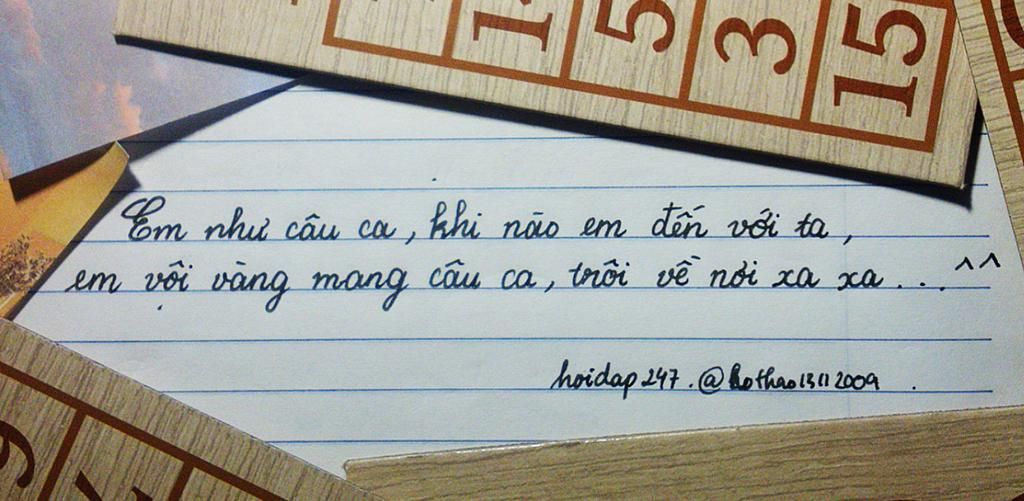 1
5
3
15
Em như câu ca, khi nào em đến với ta,
em vội vàng mang câu ca, trôi về nơi xa xa...^^
hoidap247.@hothao13112009.